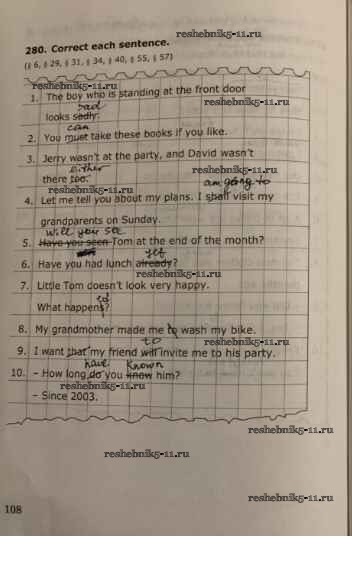 reshebnik5-11.ru
280. Correct each sentence.
(§ 6, § 29, § 31, § 34, § 40, § 55, § 57)
reshebnik5-11.ru
1. The boy who is standing at the front door
reshebnik5-11.ru
sad
looks sadly.
can
2. You must take these books if you like.
3. Jerry wasn't at the party, and David wasn't
either reshebnik5-11.ru
there too.
reshebnik5-11.ru am going to
4. Let me tell you about my plans. I shall visit my
grandparents on Sunday.
will you see
5. Have you seen Tom at the end of the month?
yet
6. Have you had lunch already?
reshebnik5-11.ru
7. Little Tom doesn't look very happy.
ed
What happens?
8. My grandmother made me to wash my bike.
to reshebnik5-11.ru
9. I want that my friend will invite me to his party.
have known
10. – How long do you know him?
reshebnik5-11.ru
– Since 2003.
reshebnik5-11.ru
reshebnik5-11.ru
reshebnik5-11.ru
108